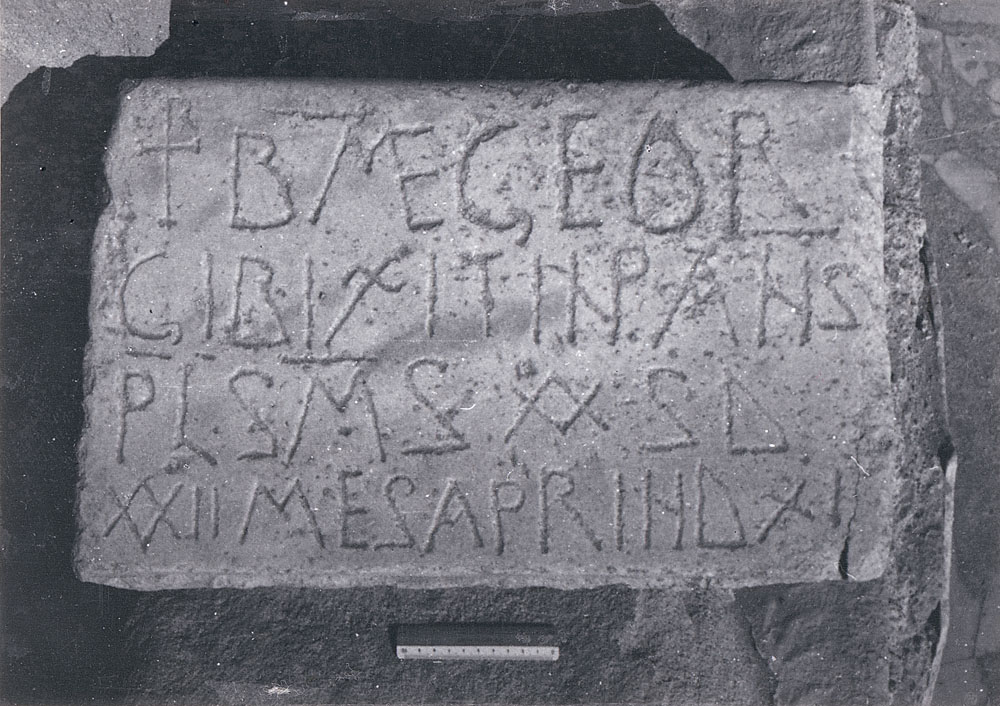 ✝ B M̅ E G E O R
G I B I X I T I N P A N S
P L S M̅ S X X S D
XXII MES APR IND XII